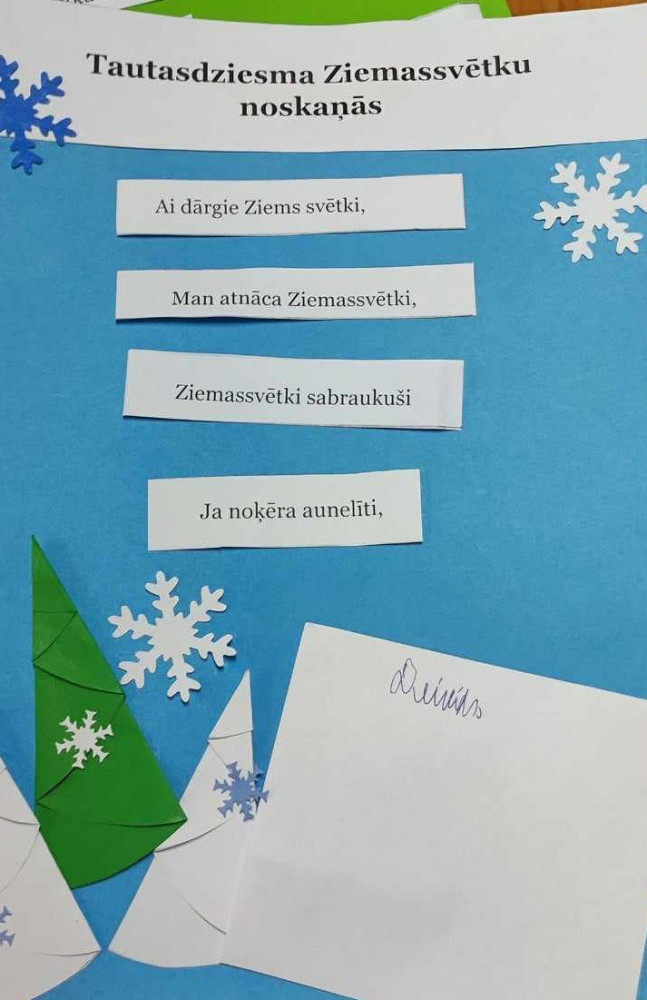 Tautasdziesma Ziemassvētku
noskaņās
Ai dārgie Ziems svētki,
Man atnāca Ziemassvētki,
Ziemassvētki sabraukuši
Ja noķēra aunelīti,
Deivids